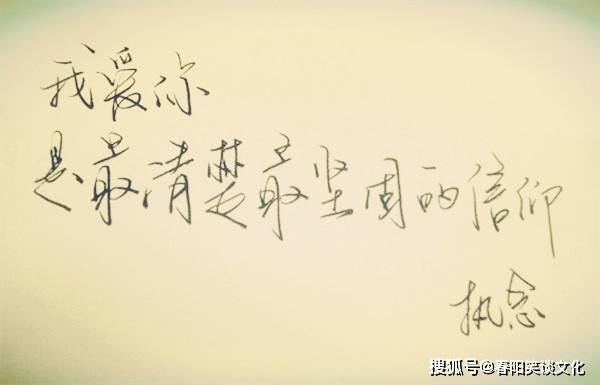 我爱你
是最清楚最坚固的信仰
执念
搜狐号@春阳笑谈文化